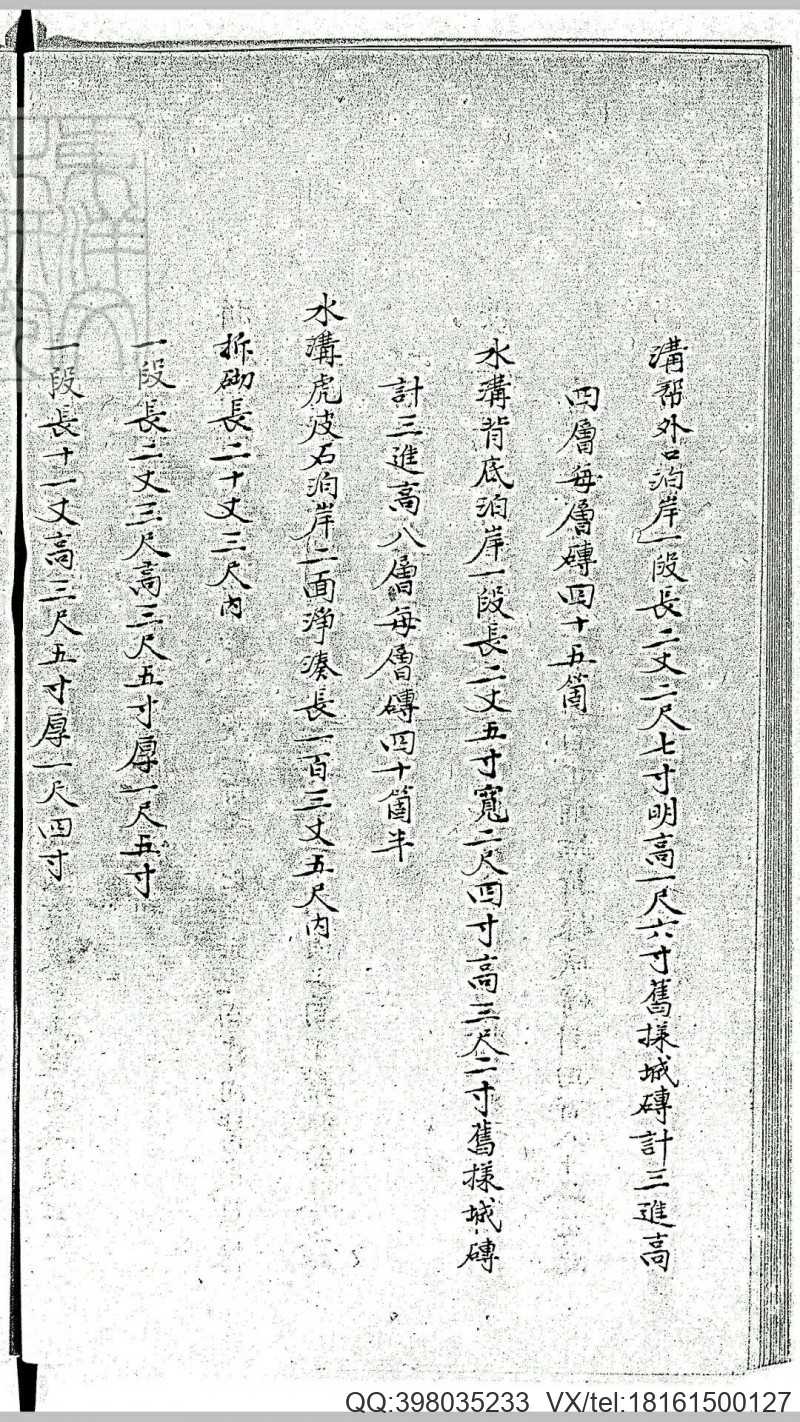 溝帮外口泊岸一段長二丈二尺七寸明高一尺六寸舊様城磚計三進高
四層每層磚四十五箇
水溝背底泊岸一段長二丈五寸寬二尺四寸高三尺二寸舊様城磚
計三進高八層每層磚四十箇半
水溝虎皮石泊岸二面淨湊長一百三丈五尺內
拆砌長二十丈三尺內
一段長二丈三尺高三尺五寸厚一尺五寸
一段長十一丈高三尺五寸厚一尺四寸
QQ:398035233 VX/tel:18161500127